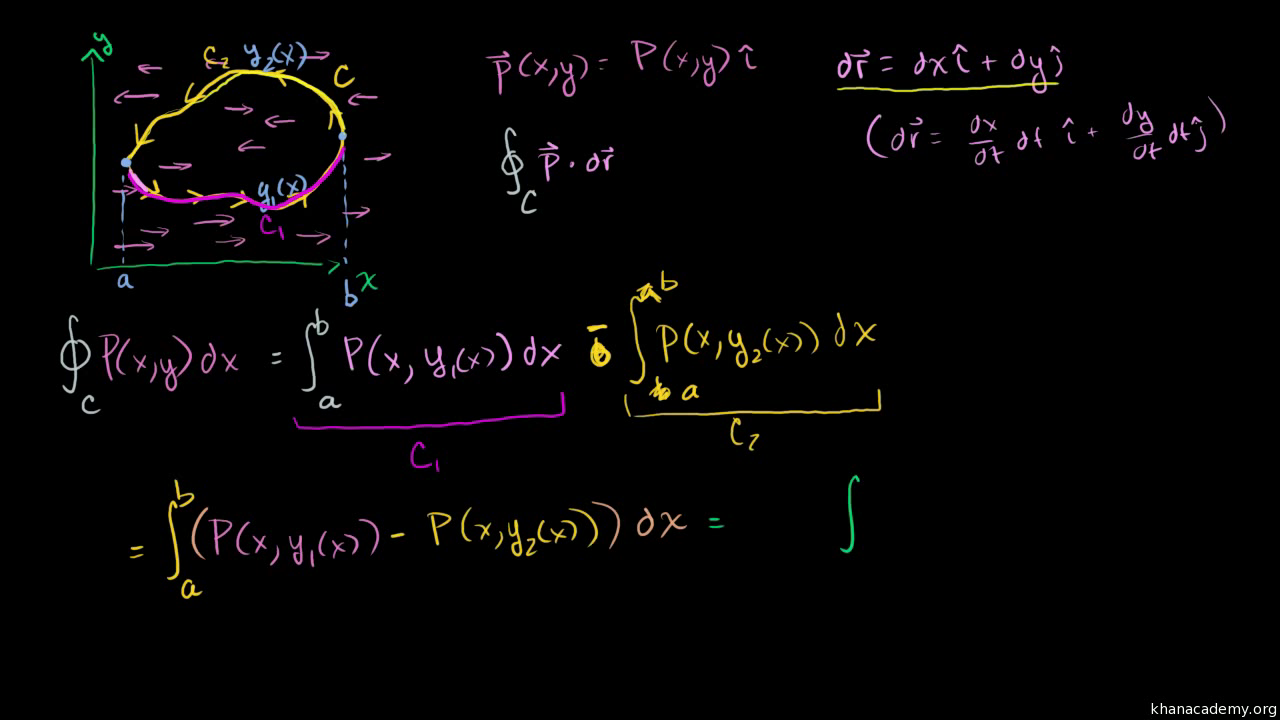 y
C₂ y₂(x)
C
y₁(x)
C₁
a
b
x
p⃗(x,y) = P(x,y) î
∮ p⃗ · dr⃗
C
dr⃗ = dx î + dy ĵ
(dr⃗ = dx/dt dt î + dy/dt dt ĵ)
∮_C P(x,y) dx = ∫_a^b P(x, y₁(x)) dx - ∫_a^b P(x, y₂(x)) dx
C₁
C₂
= ∫_a^b (P(x, y₁(x)) - P(x, y₂(x))) dx = ∫
khanacademy.org